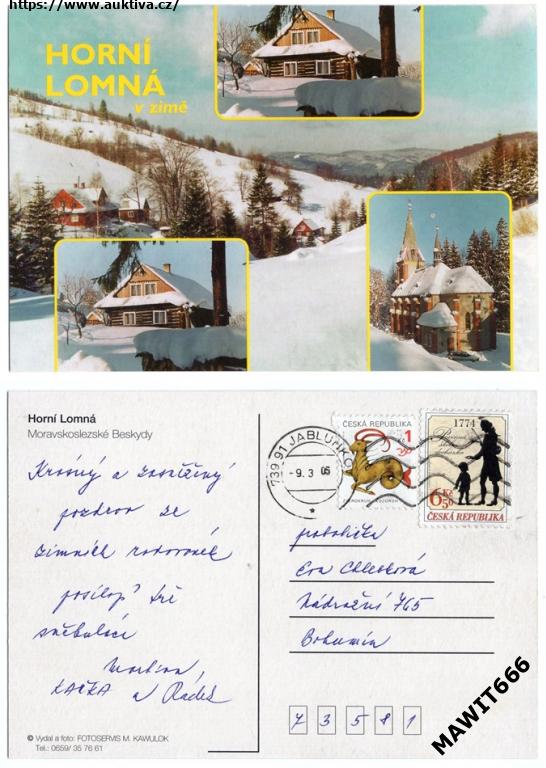 https://www.auktiva.cz/
HORNÍ
LOMNÁ
v zimě
Horní Lomná
Moravskoslezské Beskydy
Krásný a zasněžený
pozdrav ze
zimních radovánek
posílají tři
sněhuláci
Martina,
KAČKA a Radek
739 91 JABLUNKO
-9.3 05
ČESKÁ REPUBLIKA
1
1774
6 50 Kč
ČESKÁ REPUBLIKA
Eva
Nádražní 765
Bohumín
7 3 5 8 1
© Vydal a foto: FOTOSERVIS M. KAWULOK
Tel.: 0659/ 35 76 61
MAWIT666